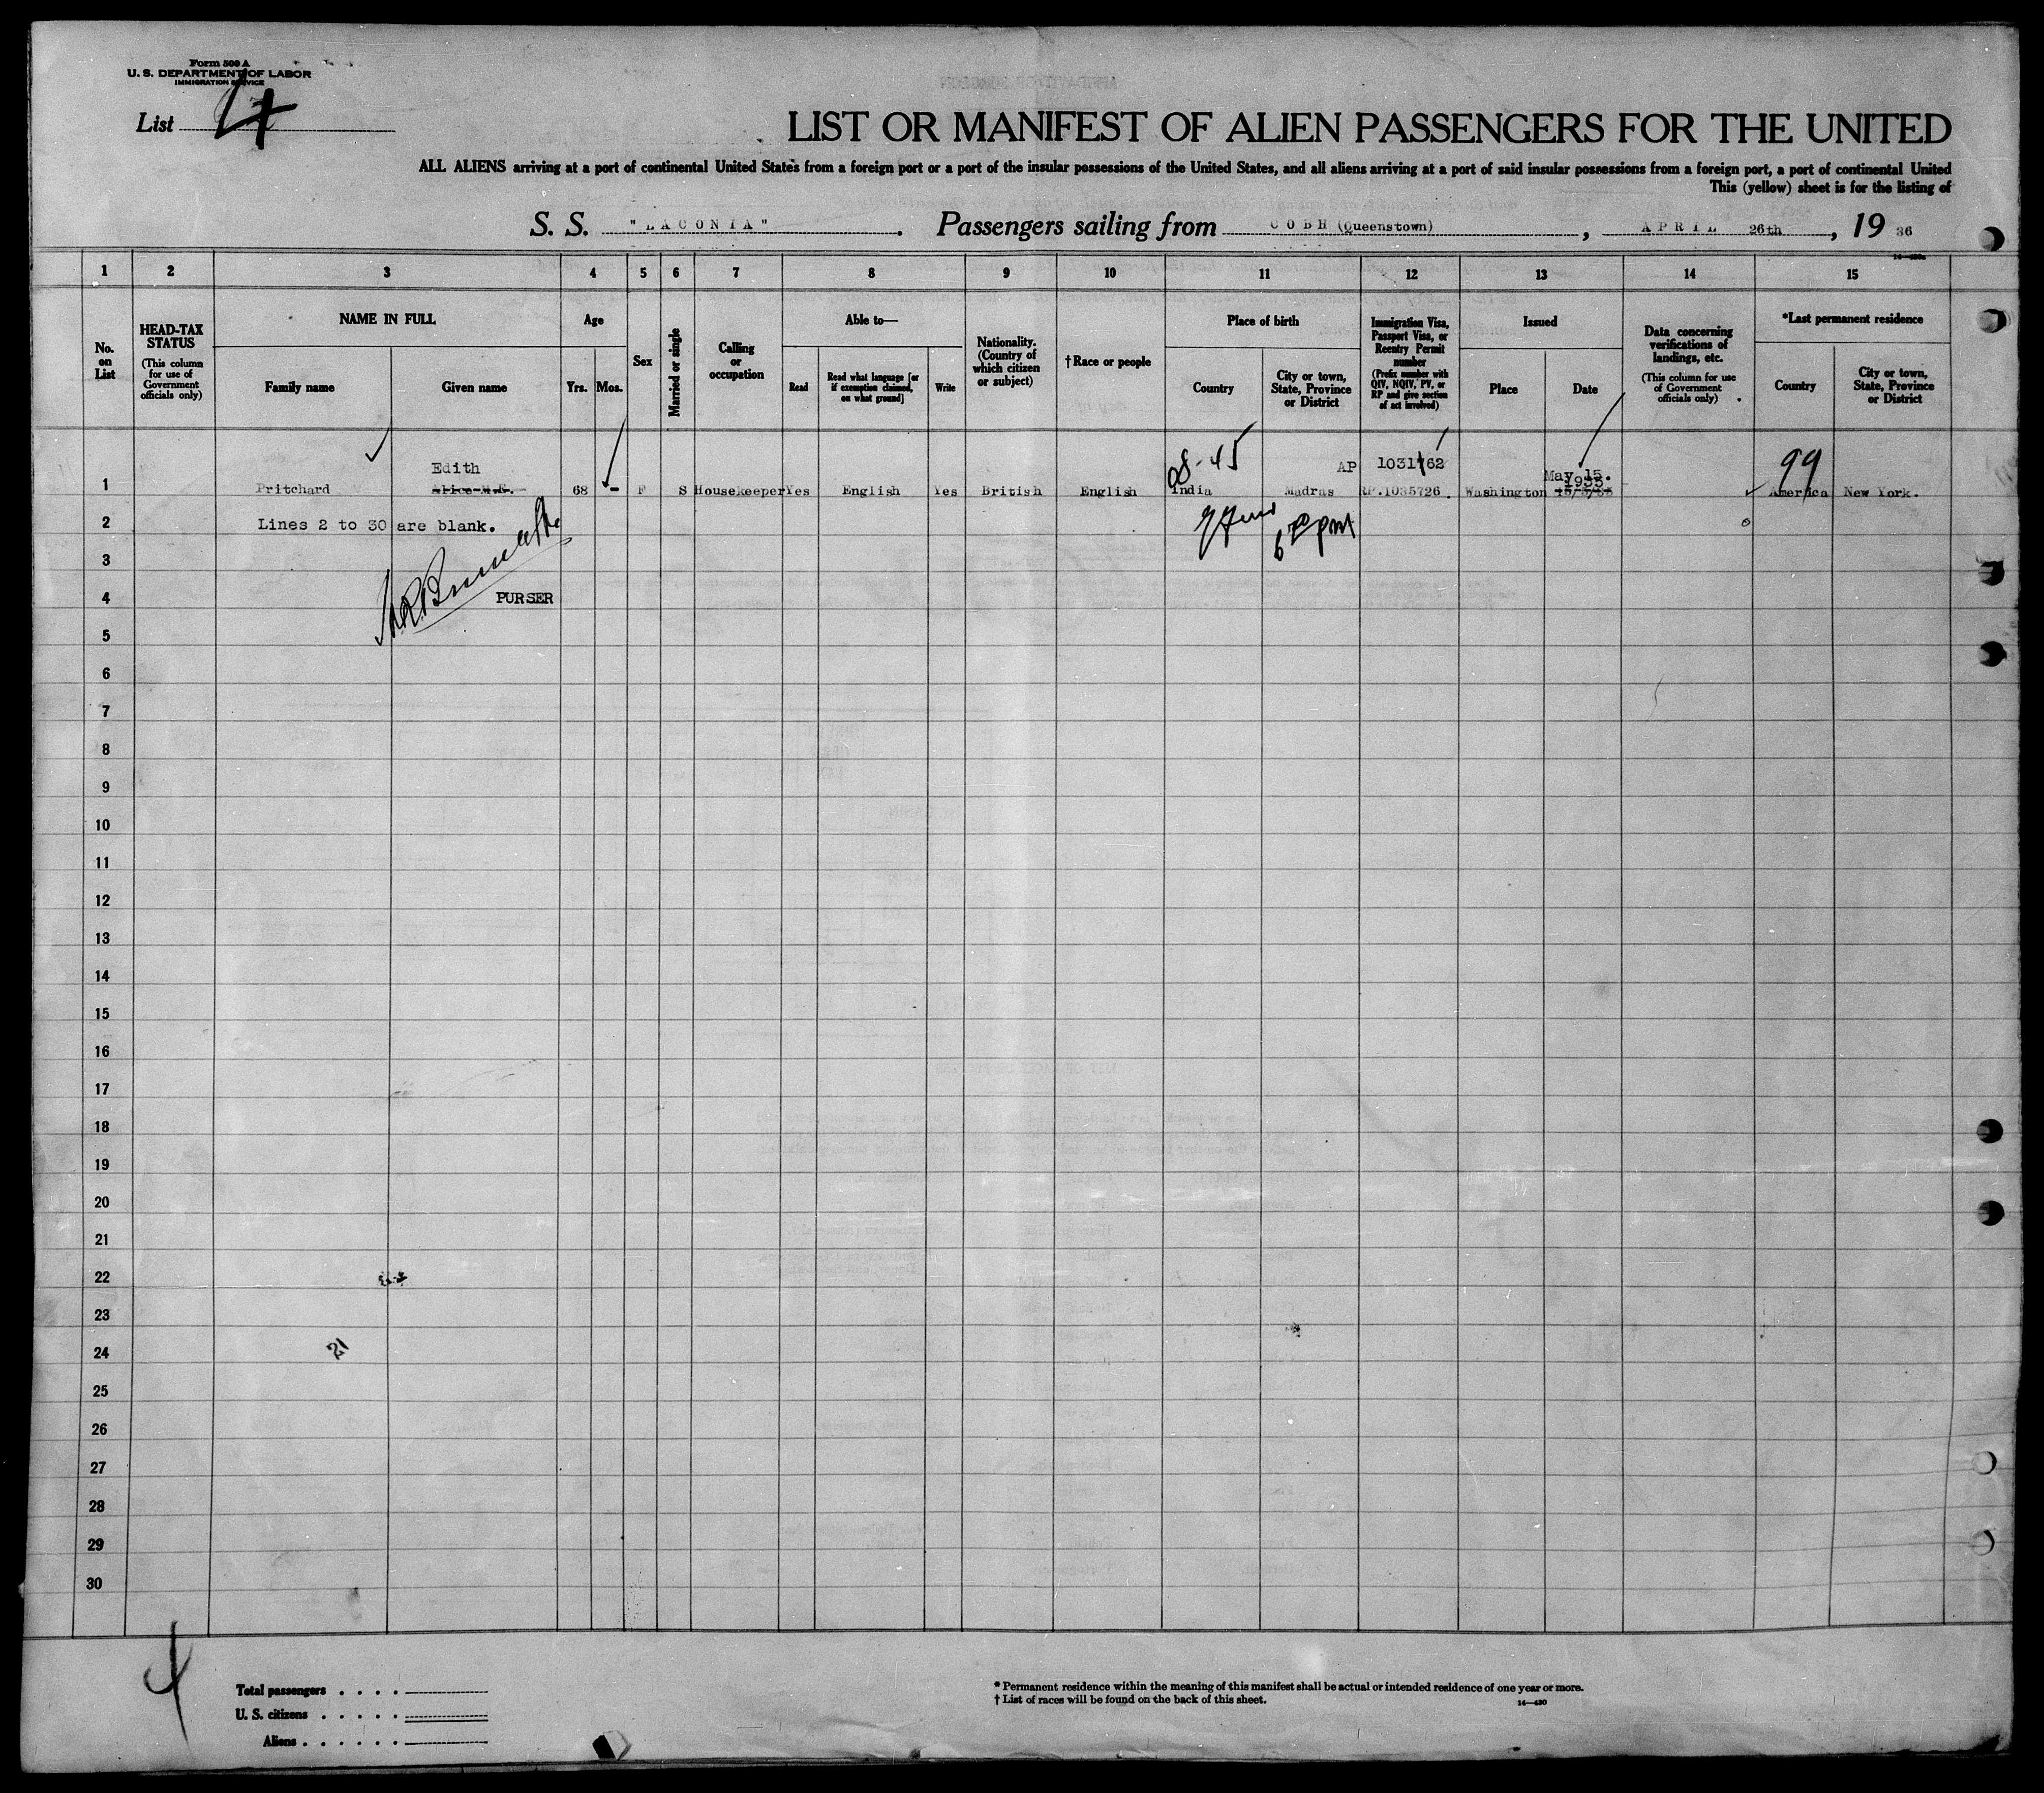 Form 500 A
U. S. DEPARTMENT OF LABOR
IMMIGRATION SERVICE
List 4
LIST OR MANIFEST OF ALIEN PASSENGERS FOR THE UNITED
ALL ALIENS arriving at a port of continental United States from a foreign port or a port of the insular possessions of the United States, and all aliens arriving at a port of said insular possessions from a foreign port, a port of continental United
This (yellow) sheet is for the listing of
S. S. "LACONIA". Passengers sailing from COBH (Queenstown), APRIL 26th, 19 36
1 2 3 4 5 6 7 8 9 10 11 12 13 14 15
No. on List
HEAD-TAX STATUS
(This column for use of Government officials only)
NAME IN FULL
Family name
Given name
Age
Yrs.
Mos.
Sex
Married or single
Calling or occupation
Able to—
Read
Read what language [or if exemption claimed, on what ground]
Write
Nationality. (Country of which citizen or subject)
†Race or people
Place of birth
Country
City or town, State, Province or District
Immigration Visa, Passport Visa, or Reentry Permit number
(Prefix number with QIV, NQIV, PV, or RP and give section of act involved)
Issued
Place
Date
Data concerning verifications of landings, etc.
(This column for use of Government officials only)
*Last permanent residence
Country
City or town, State, Province or District
Edith
AP 1031762
May 15.
1935
08-45
99
1 Pritchard Alice M.E. 68 - F S Housekeeper Yes English Yes British English India Madras RP.1035726. Washington 15/5/35 America New York.
2 Lines 2 to 30 are blank.
3
4 PURSER
5
6
7
8
9
10
11
12
13
14
15
16
17
18
19
20
21
22
23
24
21
25
26
27
28
29
30
4
Total passengers
U. S. citizens
Aliens
* Permanent residence within the meaning of this manifest shall be actual or intended residence of one year or more.
† List of races will be found on the back of this sheet.
14—430